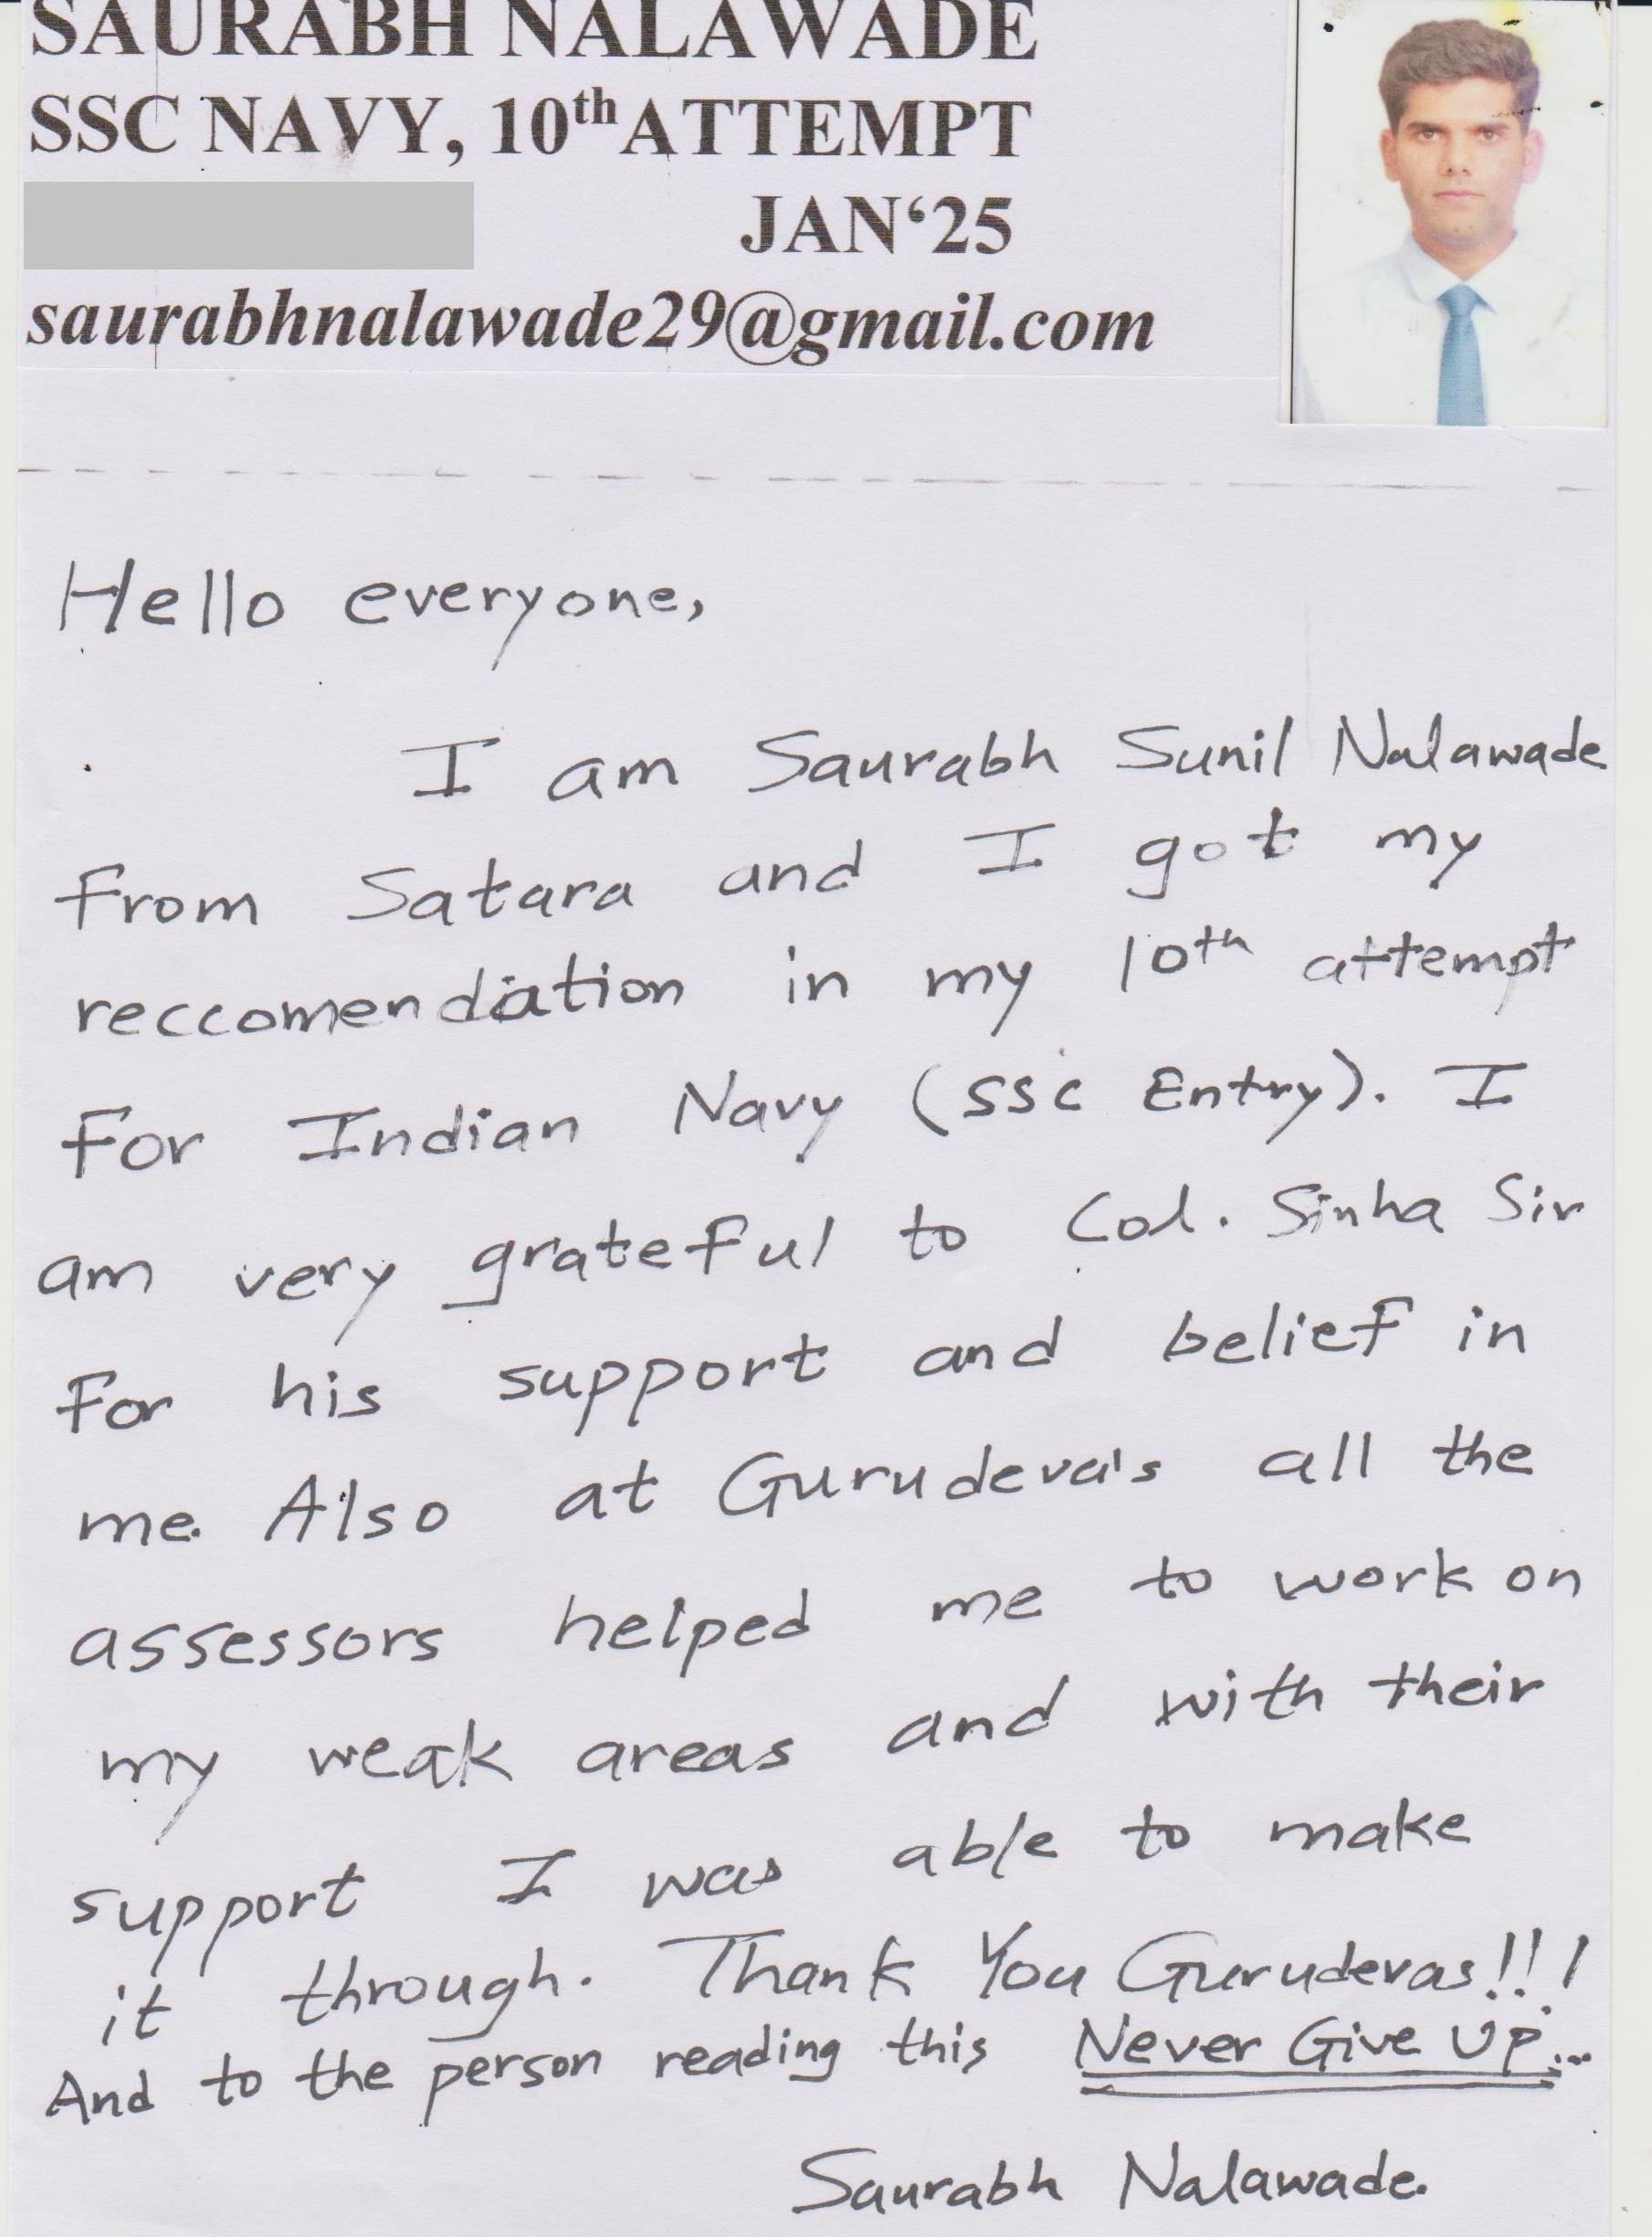 SAURABH NALAWADE
SSC NAVY, 10th ATTEMPT
JAN‘25
saurabhnalawade29@gmail.com
Hello everyone,
I am Saurabh Sunil Nalawade
from Satara and I got my
reccomendation in my 10th attempt
for Indian Navy (SSC Entry). I
am very grateful to Col. Sinha Sir
for his support and belief in
me. Also at Gurudeva's all the
assessors helped me to work on
my weak areas and with their
support I was able to make
it through. Thank You Gurudevas!!!
And to the person reading this Never Give Up...
Saurabh Nalawade.